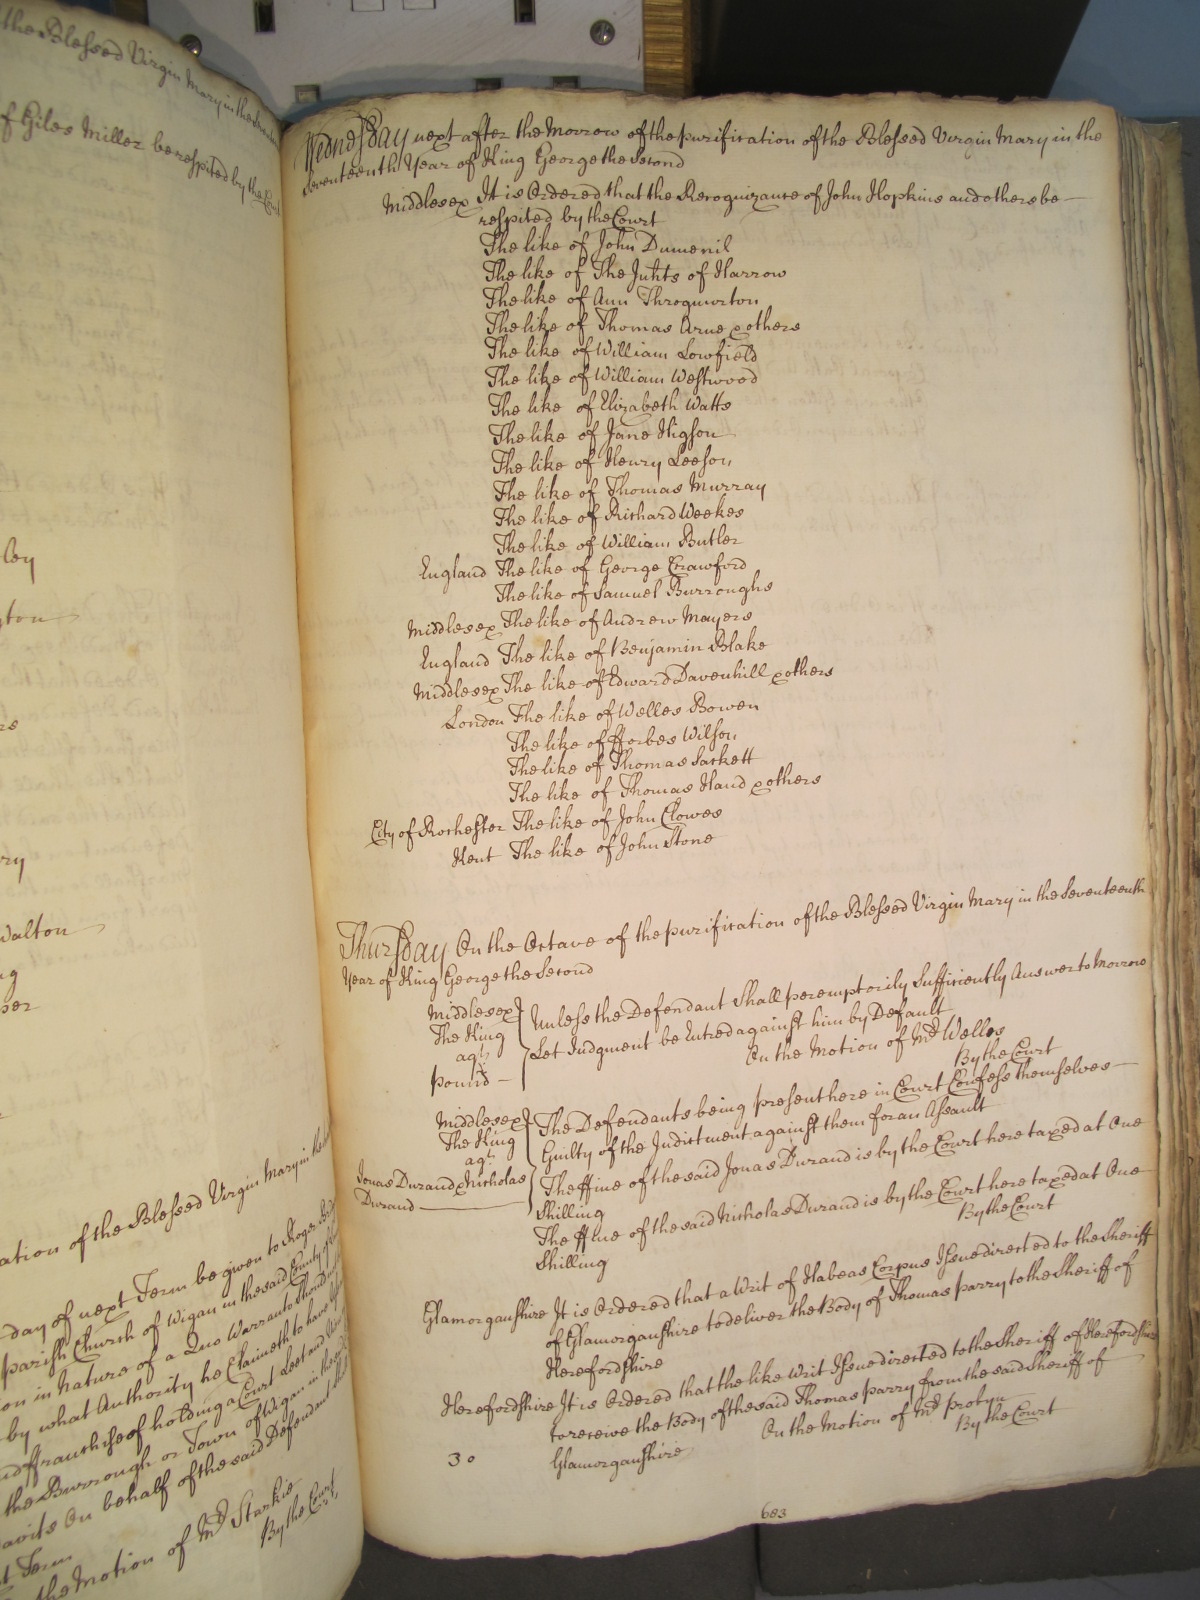 the Blessed Virgin Mary in the
of Giles Miller be respited by the Court
ley
ton
Walton
ation of the Blessed Virgin Mary in the
day of next Term be given to Roger
parish Church of Wigan in the said County of
on in Nature of a Quo Warranto Should
by what Authority he Claimeth to have
nd ffranchise of holding a Court Leet and
the Burrough or Town of Wigan in the
davits On behalf of the said Defendant
t Term
the Motion of Mr. Starkie
By the Court
Wednesday next after the Morrow of the purification of the Blessed Virgin Mary in the
Seventeenth Year of King George the Second
Middlesex It is Ordered that the Recognizance of John Hopkins and others be
respited by the Court
The like of John Dumenil
The like of The Inhts of Harrow
The like of Ann Throgmorton
The like of Thomas Arne & others
The like of William Lowfield
The like of William Westwood
The like of Elizabeth Watts
The like of Jane Higson
The like of Henry Leeson
The like of Thomas Murray
The like of Richard Weekes
The like of William Butler
England The like of George Crawford
The like of Samuel Burroughs
Middlesex The like of Andrew Mayers
England The like of Benjamin Blake
Middlesex The like of Edward Davenhill & others
London The like of Welles Bowen
The like of fforbes Wilson
The like of Thomas Sackett
The like of Thomas Hand & others
City of Rochester The like of John Clowes
Kent The like of John Stone
Thursday On the Octave of the purification of the Blessed Virgin Mary in the Seventeenth
Year of King George the Second
Middlesex
The King
agt
pound
Unless the Defendant Shall peremptorily Sufficiently Answer to Morrow
Let Judgment be Entred against him by Default
On the Motion of Mr. Welles
By the Court
Middlesex
The King
agt
Jonas Durand & Nicholas
Durand
The Defendants being present here in Court Confess themselves
Guilty of the Indictment against them for an Assault
The ffine of the said Jonas Durand is by the Court here taxed at One
Shilling
The ffine of the said Nicholas Durand is by the Court here taxed at One
Shilling
By the Court
Glamorganshire It is Ordered that a Writ of Habeas Corpus Issue directed to the Sheriff
of Glamorganshire to deliver the Body of Thomas parry to the Sheriff of
Herefordshire
Herefordshire It is Ordered that the like Writ Issue directed to the Sheriff of Herefordshire
to receive the Body of the said Thomas parry from the said Sheriff of
Glamorganshire
On the Motion of Mr. probyn
By the Court
30
683